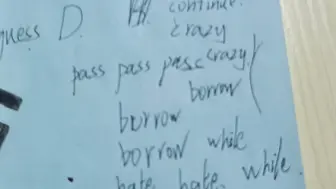 guess D. continue.
crazy
pass pass pass crazy
borrow
borrow
borrow while
hate hate while